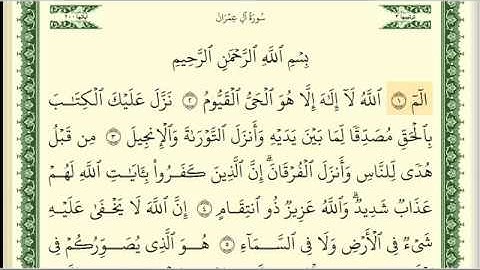 ترتيبها ٣ سُورَةُ آلِ عِمْرَانَ آياتها ٢٠٠
بِسْمِ ٱللَّهِ ٱلرَّحْمَٰنِ ٱلرَّحِيمِ
الٓمٓ ١ ٱللَّهُ لَآ إِلَٰهَ إِلَّا هُوَ ٱلْحَىُّ ٱلْقَيُّومُ ٢ نَزَّلَ عَلَيْكَ ٱلْكِتَٰبَ
بِٱلْحَقِّ مُصَدِّقًا لِّمَا بَيْنَ يَدَيْهِ وَأَنزَلَ ٱلتَّوْرَىٰةَ وَٱلْإِنجِيلَ ٣ مِن قَبْلُ
هُدًى لِّلنَّاسِ وَأَنزَلَ ٱلْفُرْقَانَ ۗ إِنَّ ٱلَّذِينَ كَفَرُوا۟ بِـَٔايَٰتِ ٱللَّهِ لَهُمْ
عَذَابٌ شَدِيدٌ ۗ وَٱللَّهُ عَزِيزٌ ذُو ٱنتِقَامٍ ٤ إِنَّ ٱللَّهَ لَا يَخْفَىٰ عَلَيْهِ
شَىْءٌ فِى ٱلْأَرْضِ وَلَا فِى ٱلسَّمَآءِ ٥ هُوَ ٱلَّذِى يُصَوِّرُكُمْ فِى